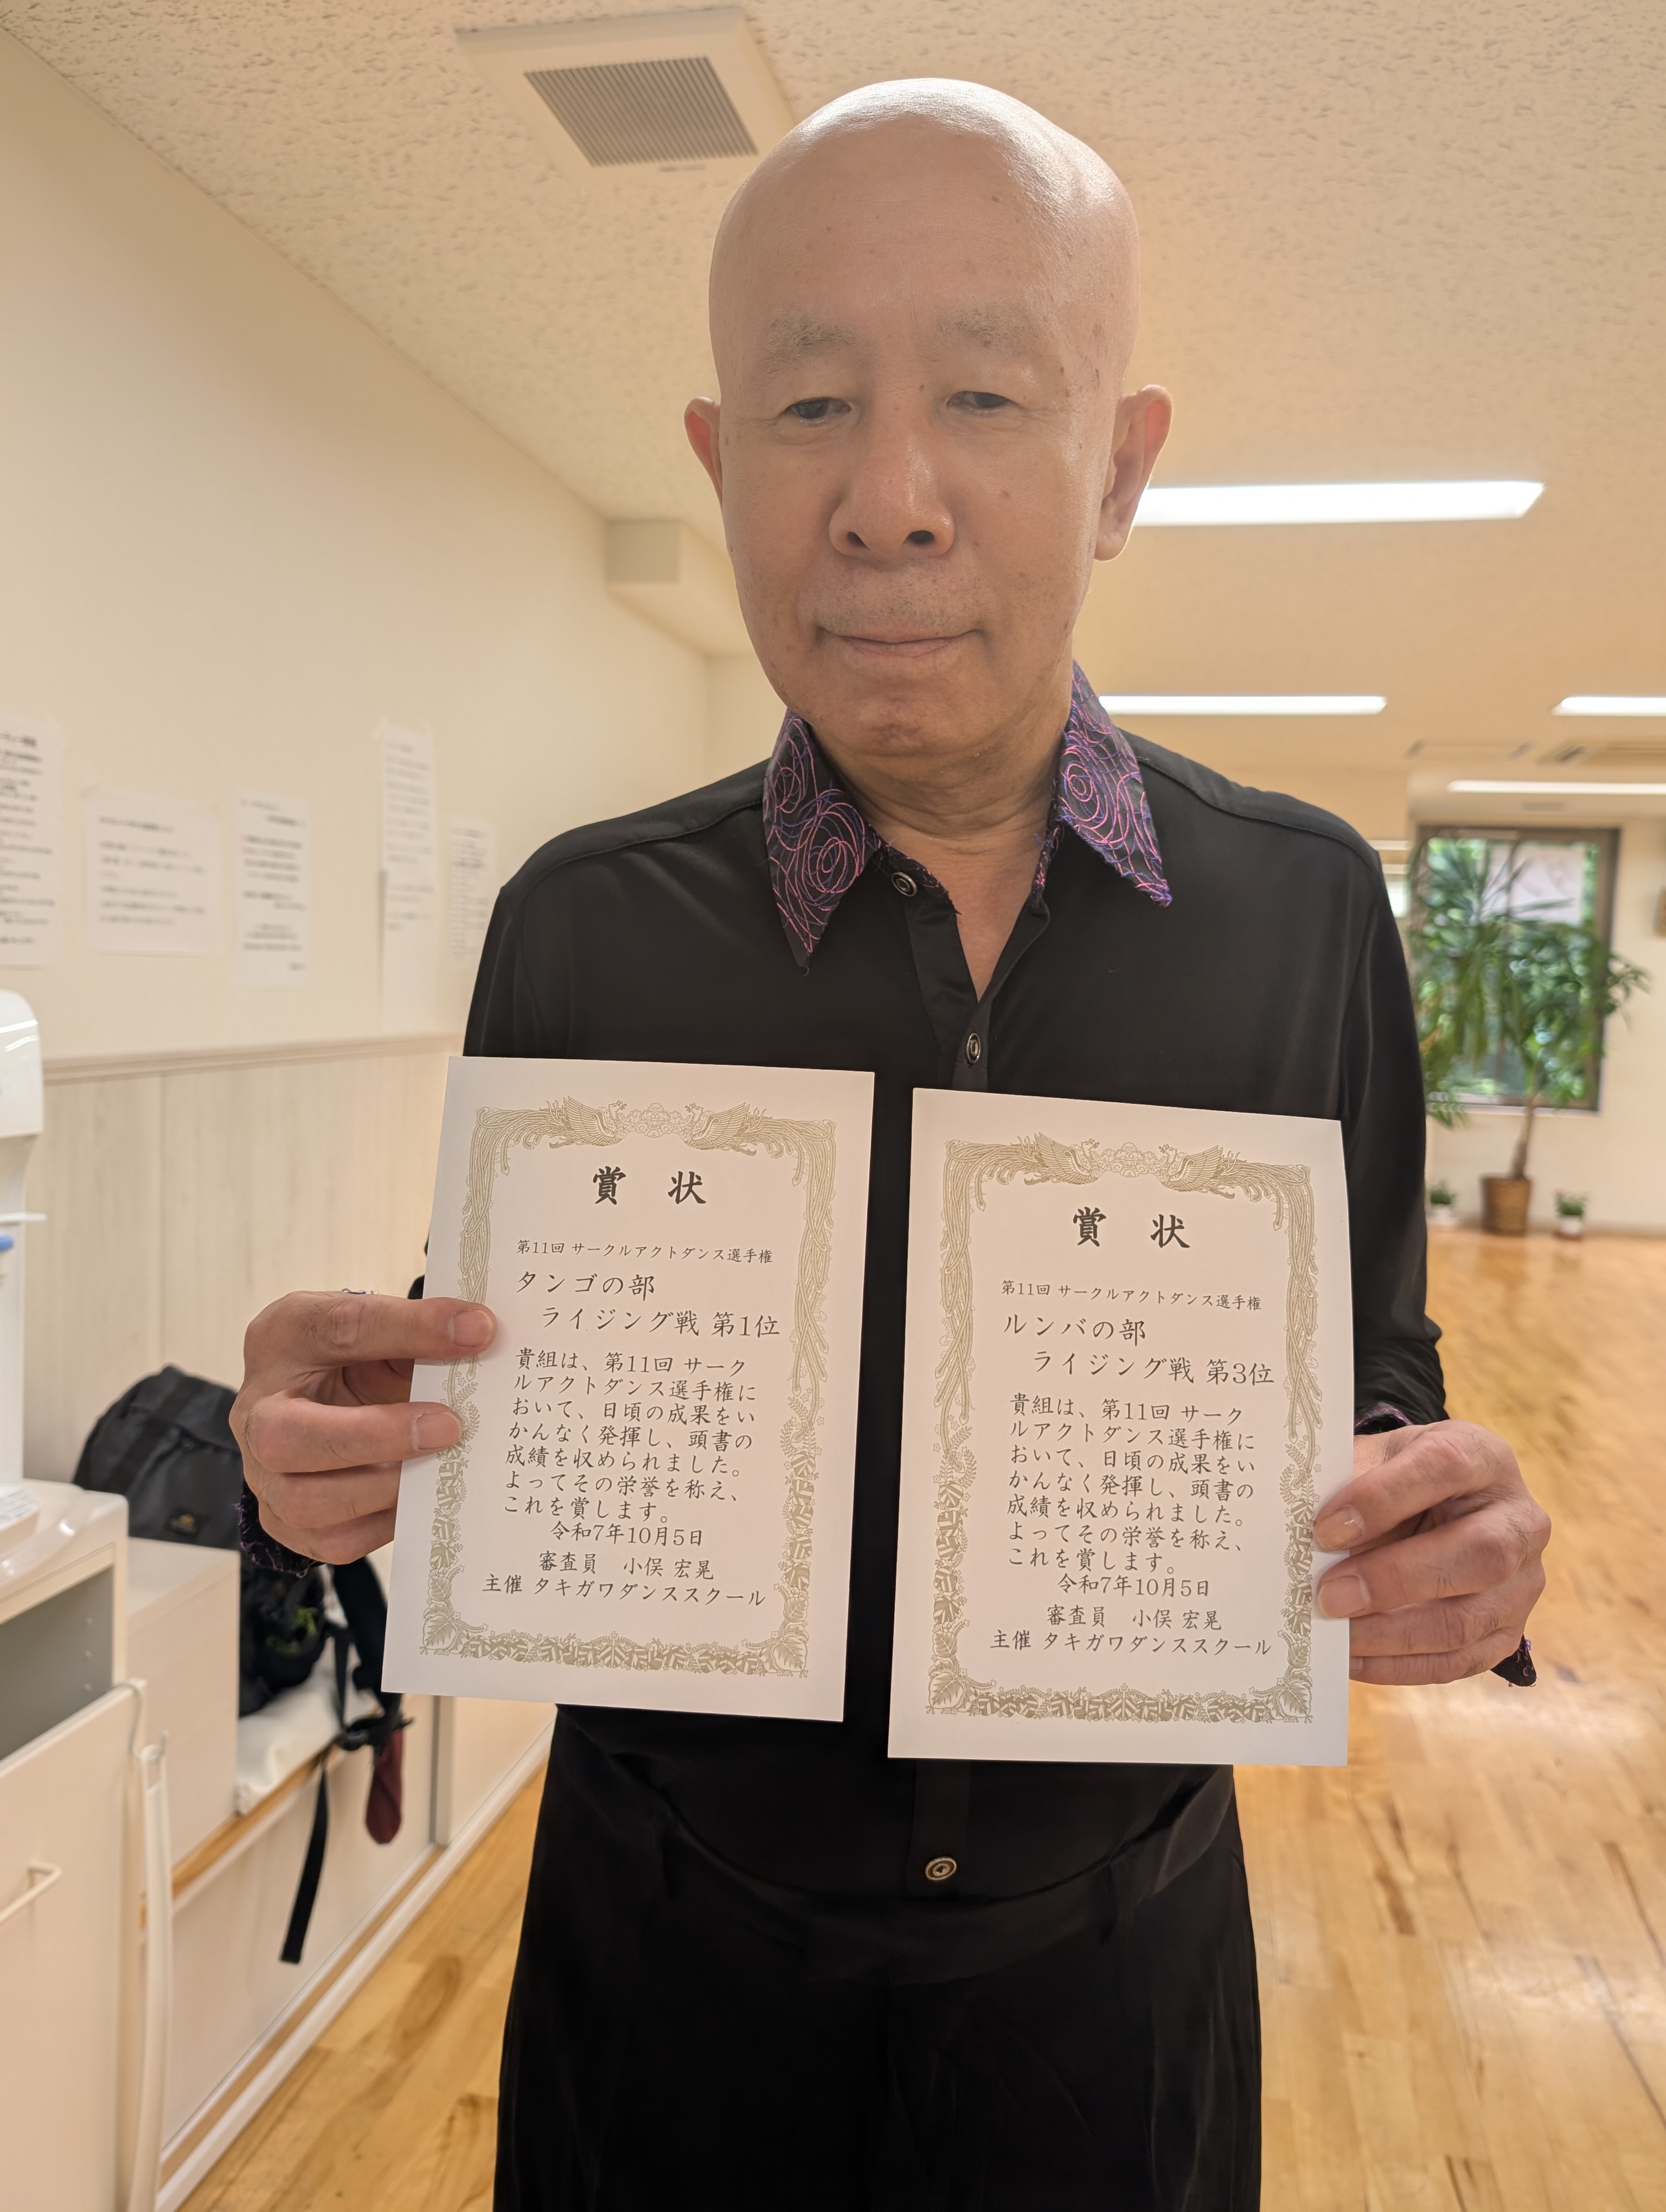 賞 状
第11回 サークルアクトダンス選手権
タンゴの部
ライジング戦 第1位
貴組は、第11回 サーク
ルアクトダンス選手権に
おいて、日頃の成果をい
かんなく発揮し、頭書の
成績を収められました。
よってその栄誉を称え、
これを賞します。
令和7年10月5日
審査員 小俣 宏晃
主催 タキガワダンススクール
賞 状
第11回 サークルアクトダンス選手権
ルンバの部
ライジング戦 第3位
貴組は、第11回 サーク
ルアクトダンス選手権に
おいて、日頃の成果をい
かんなく発揮し、頭書の
成績を収められました。
よってその栄誉を称え、
これを賞します。
令和7年10月5日
審査員 小俣 宏晃
主催 タキガワダンススクール